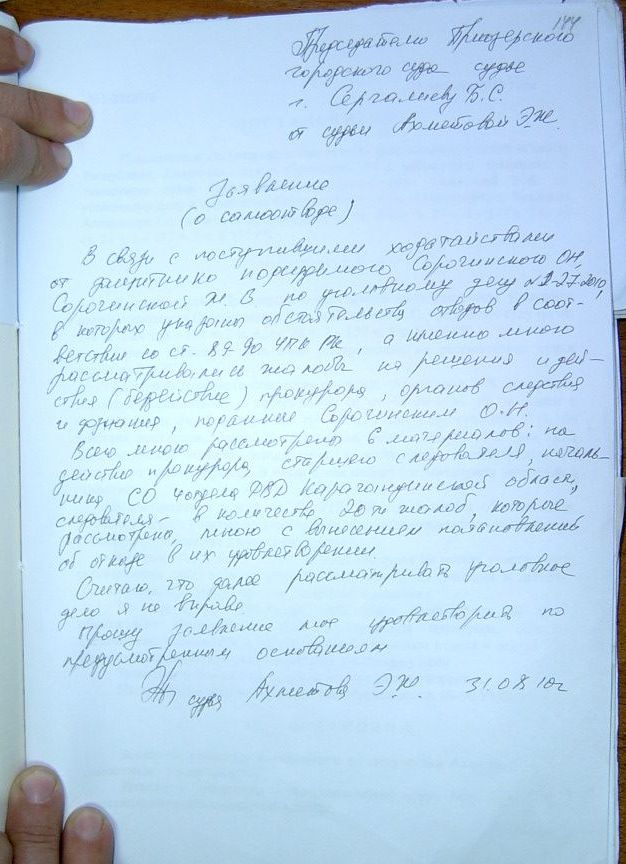 144
Председателю Приозерского
городского суда судье
г. Сергалиеву Б.С.
от судьи Ахметовой Э.Ж.
Заявление
(о самоотводе)
В связи с поступившими ходатайствами
от защитника подсудимого Сорочинского О.Н,
Сорочинской Ж. В по уголовному делу №1-27-2010,
в которых указаны обстоятельства отводов в соот-
ветствие со ст. 87-90 УПК РК, а именно мною
рассматривались жалобы на решения и дей-
ствия (бездействие) прокурора, органов следствия
и дознания, поданные Сорочинским О.Н.
Всего мною рассмотрено 6 материалов: на
действие прокурора, старшего следователя, началь-
ника СО ДВД Карагандинской области,
следователя - в количестве 20ти жалоб, которые
рассмотрены мною с вынесением постановлений
об отказе в их удовлетворении.
Считаю, что далее рассматривать уголовное
дело я не вправе
Прошу заявление мое удовлетворить по
предусмотренным основаниям
судья Ахметова Э.Ж. 31.08.10г